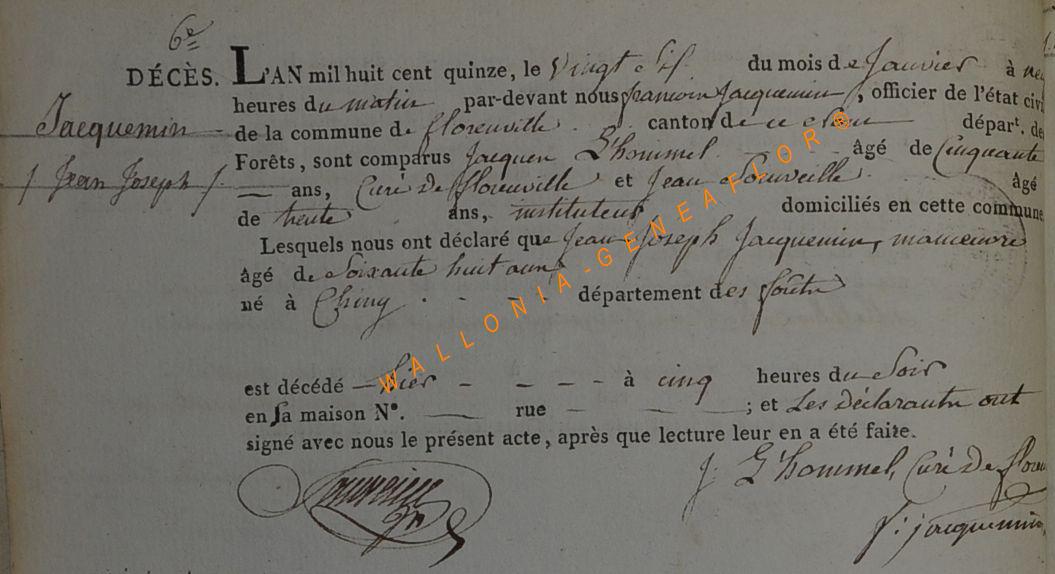 6e
DÉCÈS. L'AN mil huit cent quinze, le vingt Six du mois de Janvier à neuf
Jacquemin
heures du matin par-devant nous françois Jacquemin, officier de l'état civil
de la commune de florenville canton de ce départt. des
/ Jean Joseph /
Forêts, sont comparus Jacques L'hommel âgé de Cinquante
ans, Curé De florenville et Jean âgé
de trente ans, instituteur domiciliés en cette commune
Lesquels nous ont déclaré que Jean Joseph Jacquemin, manœuvre
âgé de Soixante huit ans
né à Chiny département des forêts
est décédé hier à cinq heures du Soir
en Sa maison N°. rue ; et Les Déclarants ont
signé avec nous le présent acte, après que lecture leur en a été faite.
J: L'hommel, Curé De
f: jacquemin,
WALLONIA-GENEAFLOR©